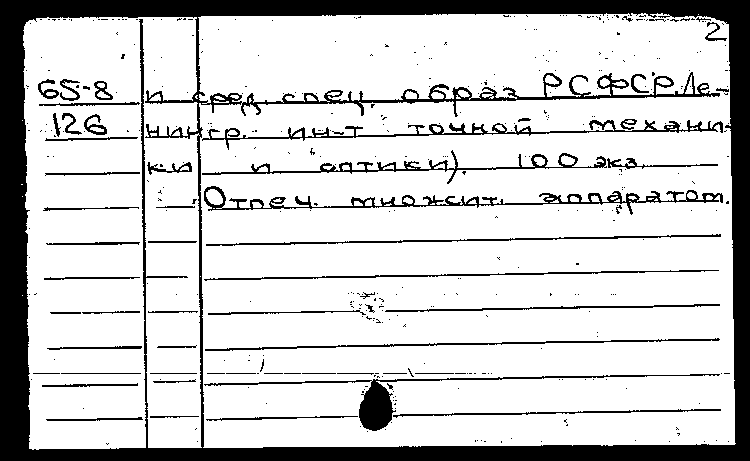 2
65-8 и сред. спец. образ РСФСР. Ле-
126 нингр. ин-т точной механи-
ки и оптики). 100 экз.
Отпеч. множит. аппаратом.